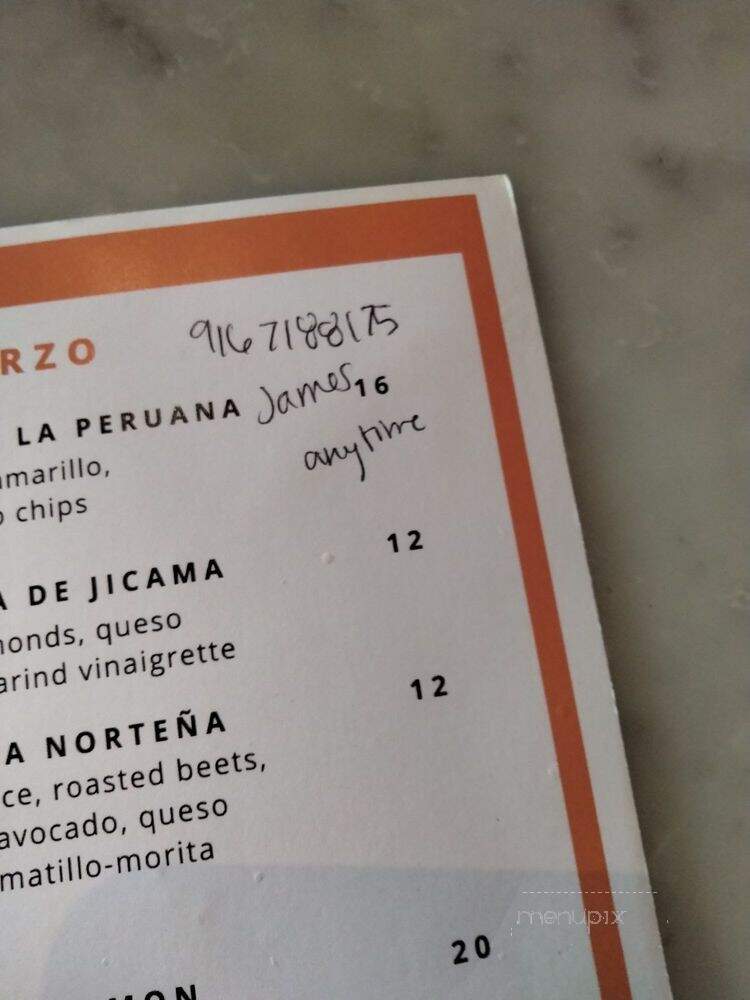 RZO
9167188175
LA PERUANA James 16
amarillo,
anytime
chips
DE JICAMA 12
monds, queso
arind vinaigrette
A NORTEÑA 12
ce, roasted beets,
avocado, queso
matillo-morita
20
MON
menupix